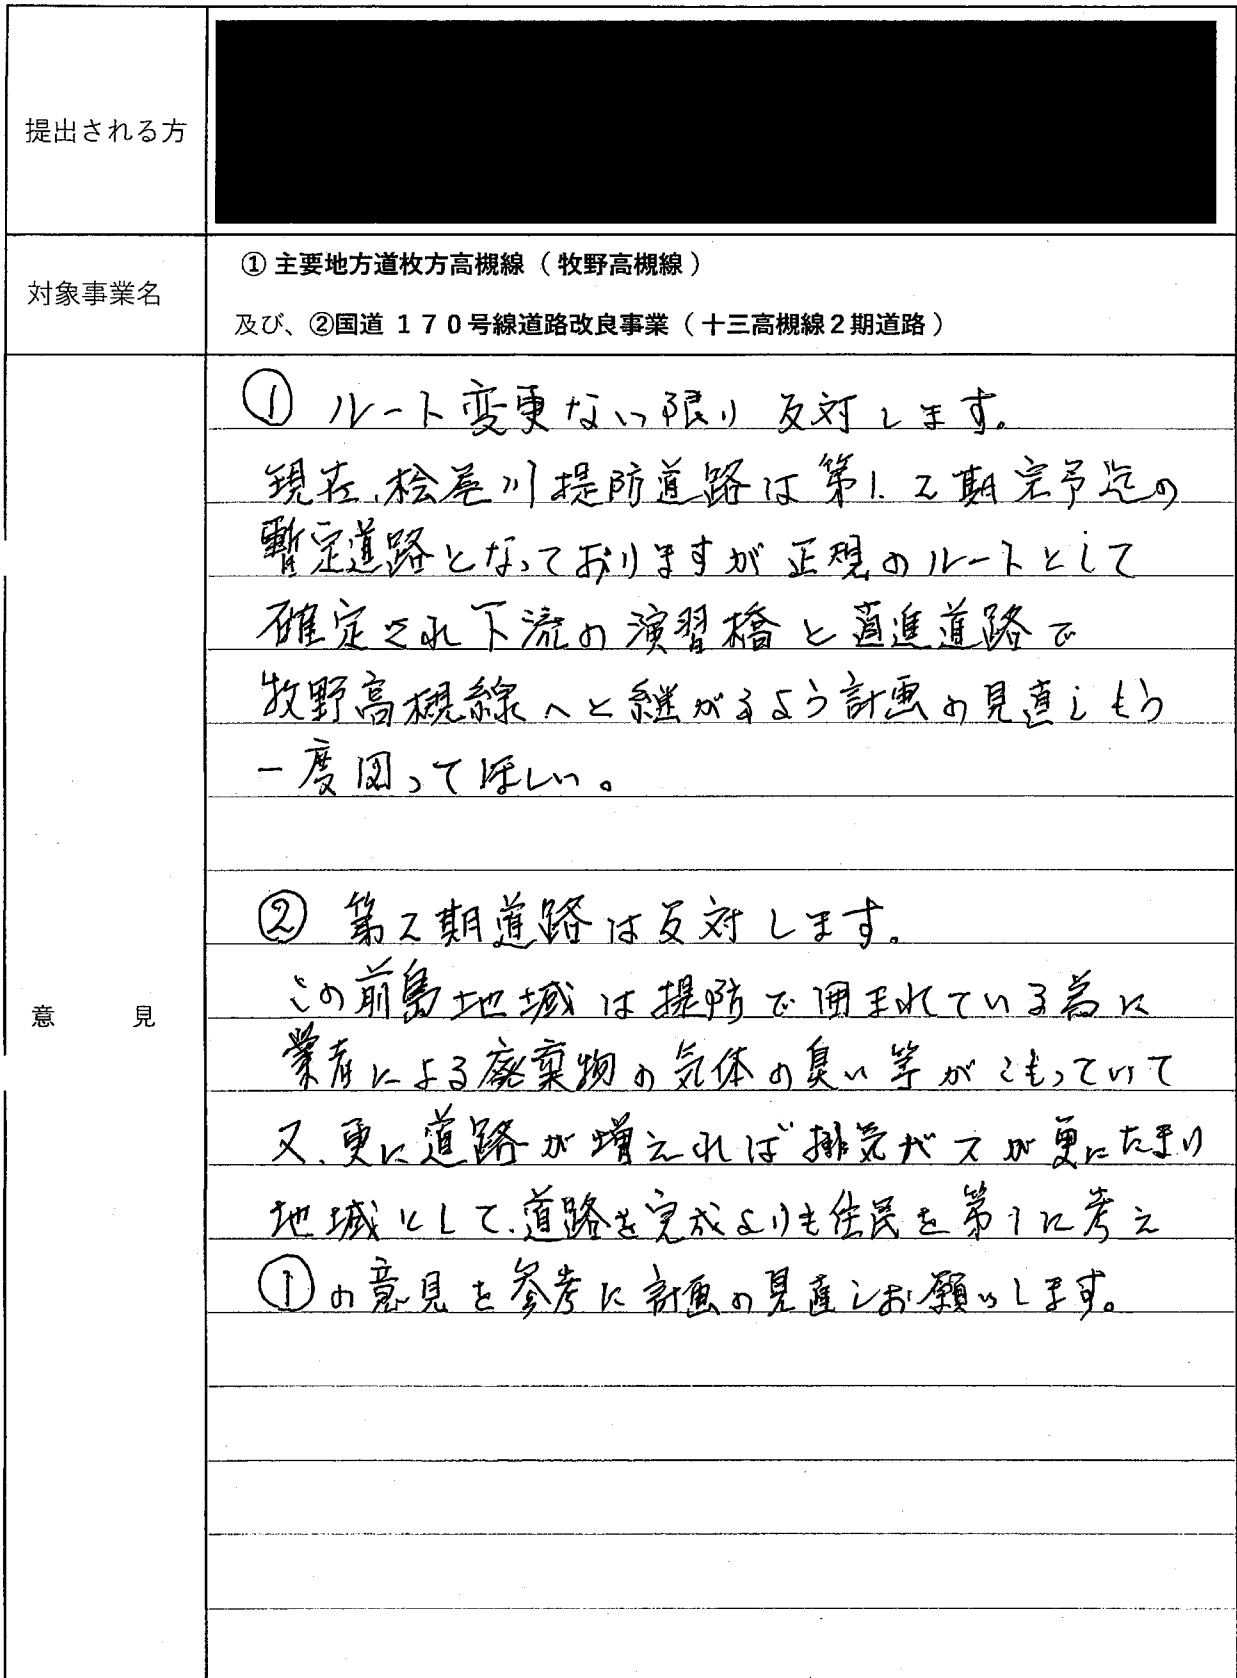 提出される方
対象事業名
① 主要地方道枚方高槻線（牧野高槻線）
及び、②国道 １７０号線道路改良事業（十三高槻線２期道路）
意 見
① ルート変更ない限り 反対します。
現在、桧尾川提防道路は第1.2期完予迄の
暫定道路となっておりますが正規のルートとして
確定され下流の演習橋と直進道路で
牧野高槻線へと継がるよう計画の見直しもう
一度図ってほしい。
② 第2期道路は反対します。
この前島地域は提防で囲まれている為に
業者による廃棄物の気体の臭い等がこもっていて
又、更に道路が増えれば排気ガスが更にたまり
地域にして、道路を完成よりも住民を第1に考え
①の意見を参考に計画の見直しお願いします。